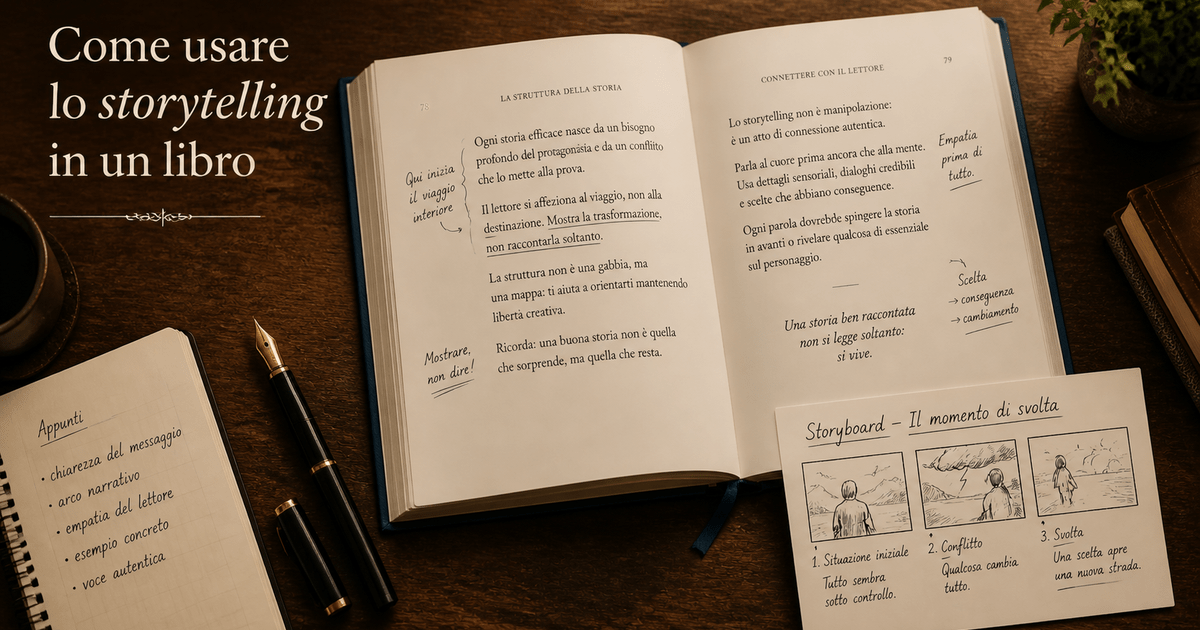 Come usare
lo storytelling
in un libro
78
LA STRUTTURA DELLA STORIA
Ogni storia efficace nasce da un bisogno
profondo del protagonista e da un conflitto
che lo mette alla prova.
Il lettore si affeziona al viaggio, non alla
destinazione. Mostra la trasformazione,
non raccontarla soltanto.
La struttura non è una gabbia, ma
una mappa: ti aiuta a orientarti mantenendo
libertà creativa.
Ricorda: una buona storia non è quella
che sorprende, ma quella che resta.
Qui inizia
il viaggio
interiore
Mostrare,
non dire!
CONNETTERE CON IL LETTORE
79
Lo storytelling non è manipolazione:
è un atto di connessione autentica.
Parla al cuore prima ancora che alla mente.
Usa dettagli sensoriali, dialoghi credibili
e scelte che abbiano conseguence.
Ogni parola dovrebbe spingere la storia
in avanti o rivelare qualcosa di essenziale
sul personaggio.
Una storia ben raccontata
non si legge soltanto:
si vive.
Empatia
prima di
tutto.
Scelta
→ conseguenza
→ cambiamento
Appunti
• chiarezza del messaggio
• arco narrativo
• empatia del lettore
• esempio concreto
• voce autentica
Storyboard – Il momento di svolta
1. Situazione iniziale
Tutto sembra
sotto controllo.
2. Conflitto
Qualcosa cambia
tutto.
3. Svolta
Una scelta apre
una nuova strada.